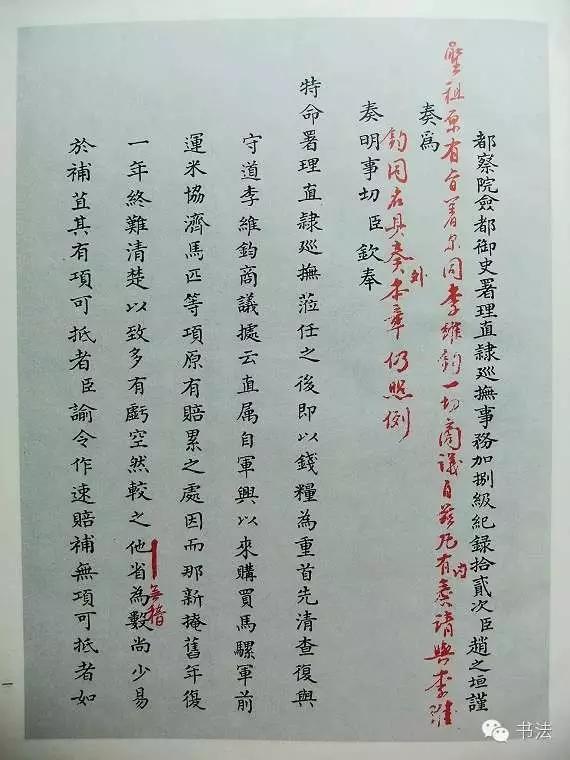 都察院僉都御史署理直隸巡撫事務加捌級紀錄拾貳次臣趙之垣謹
聖祖原有旨著尔同李維鈞一切商議自茲凡有內奏請與李維
奏爲
鈞同名具奏外本章仍照例
奏明事切臣欽奉
特命署理直隷巡撫蒞任之後即以錢糧為重首先清查復與
守道李維鈞商議據云直属自軍興以來購買馬騾軍前
運米協濟馬匹等項原有賠累之處因而那新掩舊年復
一年終難清楚以致多有虧空然較之他省為數尚少易
無稽
於補苴其有項可抵者臣諭令作速賠補無項可抵者如
书法